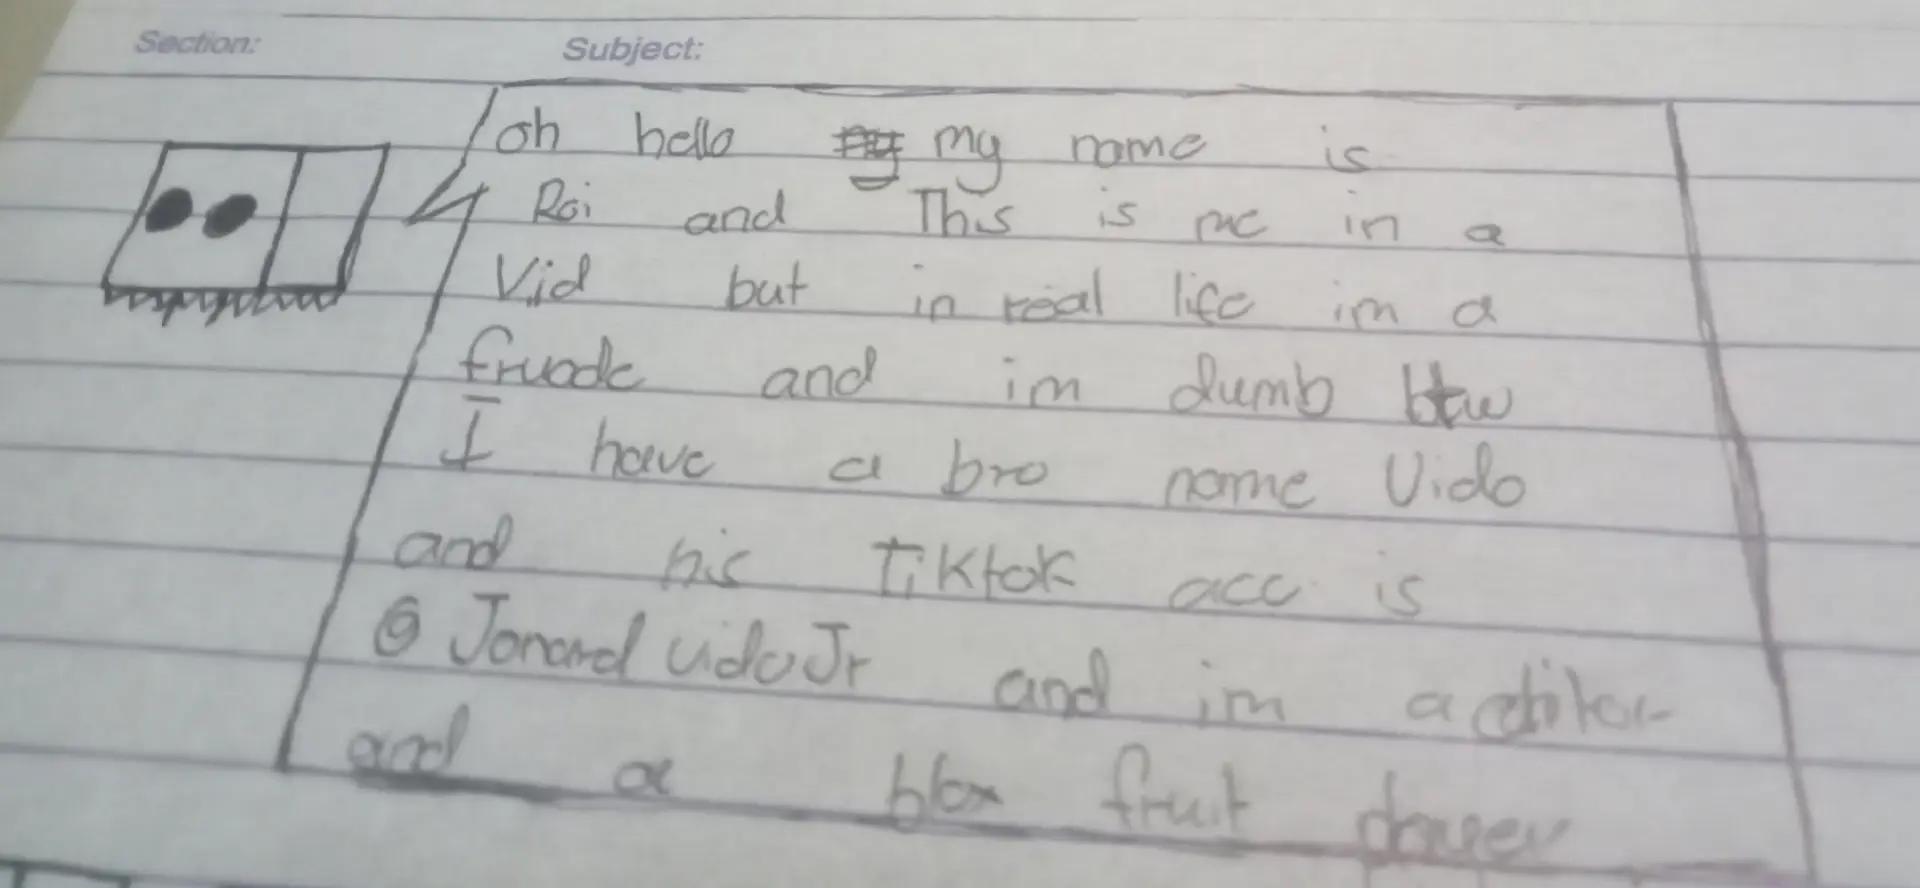 Section: Subject:
oh hello my name is
Roi and This is me in a
Vid but in real life im a
fruade and im dumb btw
I have a bro name Vido
and his Tiktok acc is
@ Jonard vido Jr and im a editor
and a blox fruit